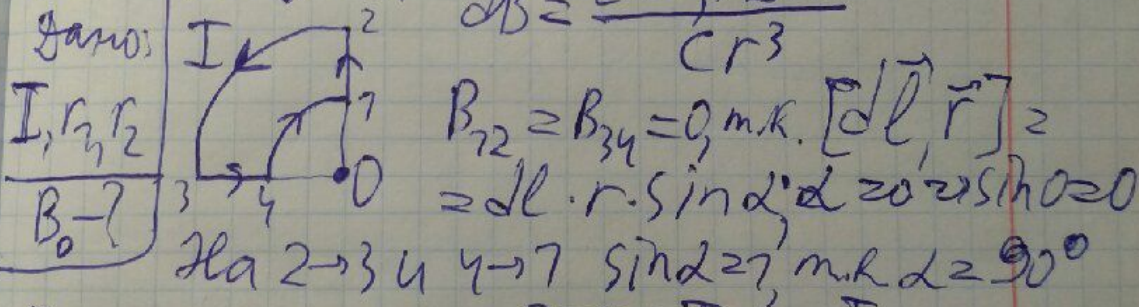 Дано:
I, r₁, r₂
B₀ - ?
I 2 1 3 4 O
dB =
cr³
B₁₂ = B₃₄ = 0, т.к. [dl⃗, r⃗] =
= dl · r · sinα; α = 0 ⇒ sin0 = 0
На 2→3 и 4→1 sinα = 1, т.к α = 90°